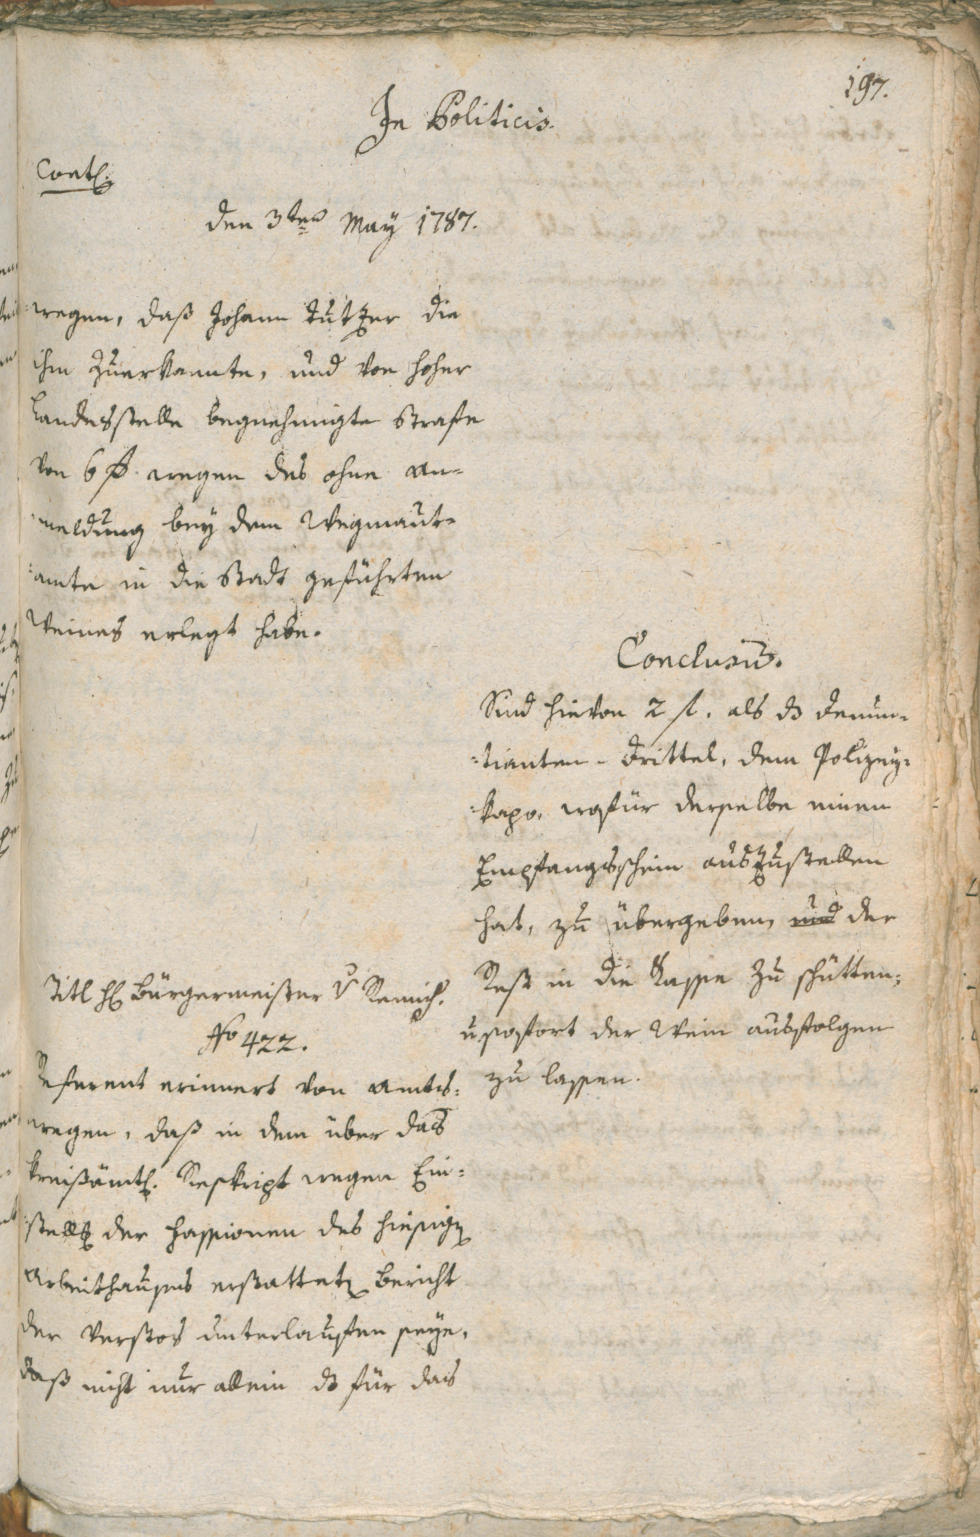 197.
In Politicis.
Contl.
den 3ten May 1787.
wegen, daß Johann Tutzer die
ihm zuerkannte, und von hoher
Landesstelle begnehmigte Strafe
von 6 f. wegen des ohne An-
meldung bey dem Wegmaut-
amte in die Stadt geführten
Weines erlegt habe.
Conclusũ.
Sind hievon 2 f. als ds Denun-
tianten-Drittel, dem Polizey-
kapo, wofür derselbe einen
Empfangsschein auszustellen
hat, zu übergeben, und der
Rest in die Kasse zu schütten,
u. sofort der Wein ausfolgen
zu lassen.
Titl H. Bürgermeister v
No 422.
Referent erinnert von Amts-
wegen, daß in dem über das
kreisämtl. Reskript wegen Ein-
stellg der Passionen des hiesigen
Arbeitshauses erstatteten Bericht
der Verstos unterlauffen seye,
daß nicht nur allein ds für das